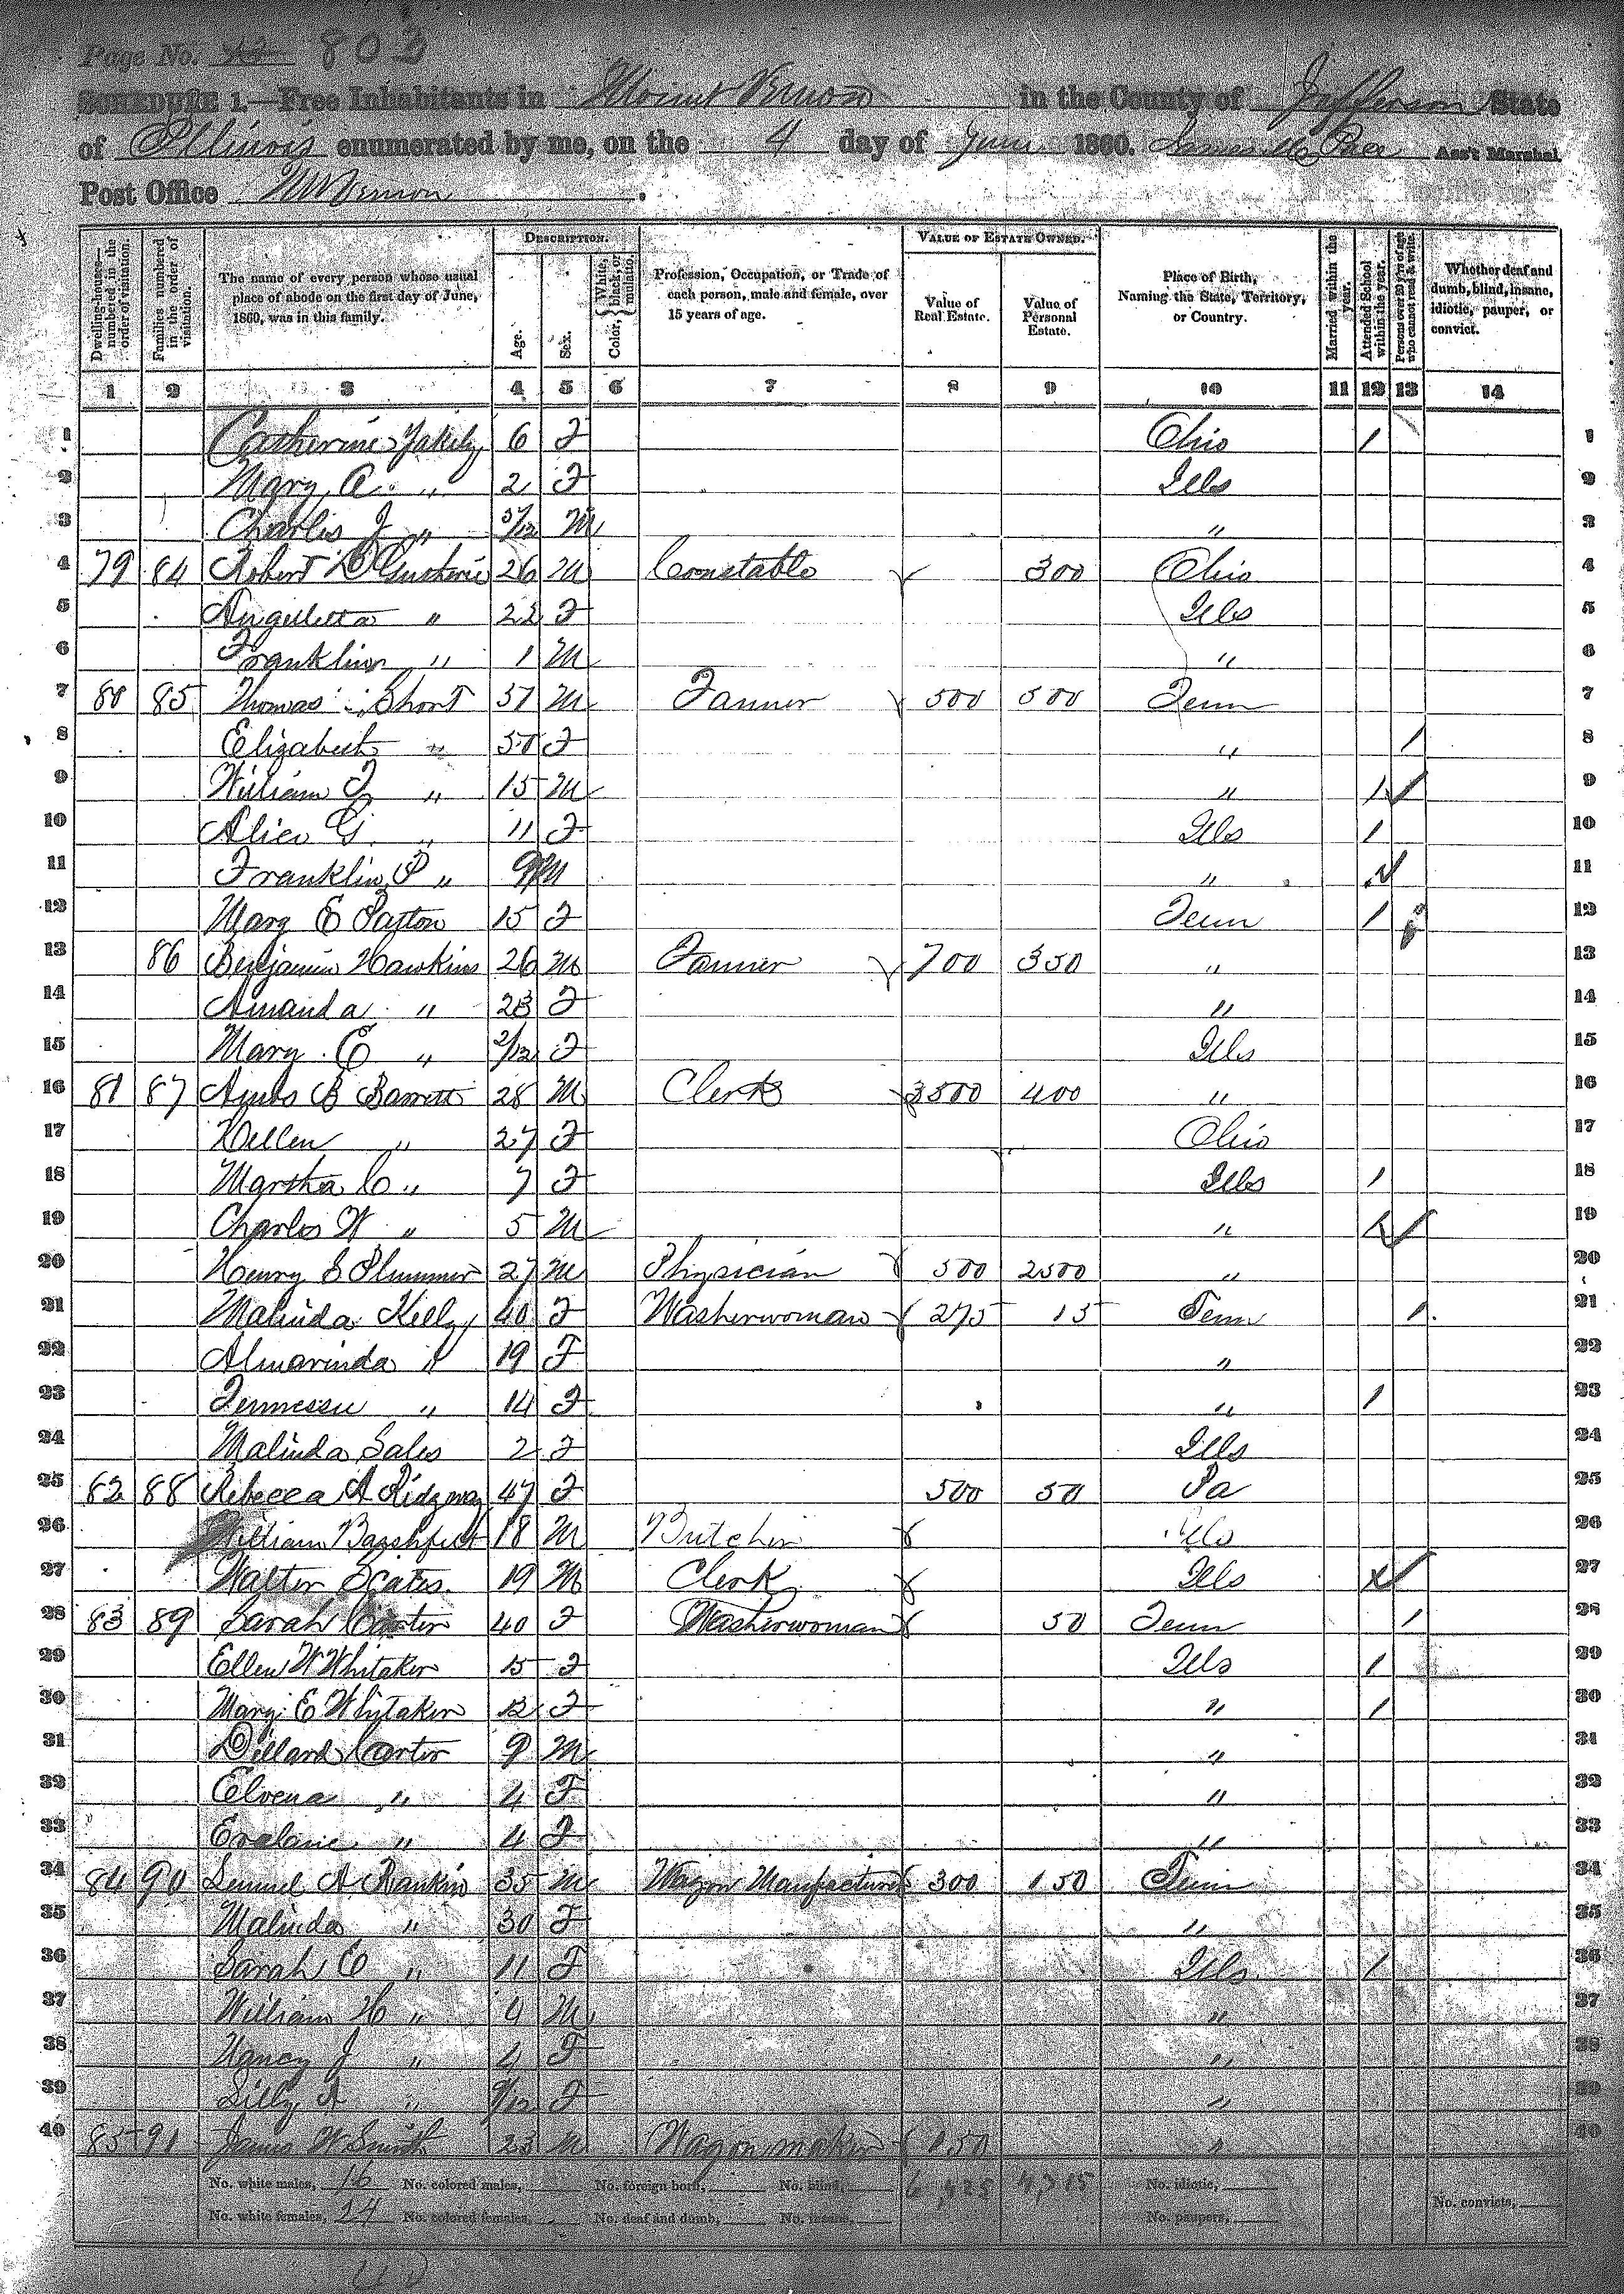 Page No. 42 803
SCHEDULE 1.—Free Inhabitants in Mount Vernon in the County of Jefferson State
of Illinois enumerated by me, on the 4 day of June 1860. Pace Ass't Marshal.
Post Office Mt Vernon.
Dwelling-house— numbered in the order of visitation. Families numbered in the order of visitation. The name of every person whose usual place of abode on the first day of June, 1860, was in this family. DESCRIPTION. Age. Sex. Color, {White, black, or mulatto. Profession, Occupation, or Trade of each person, male and female, over 15 years of age. VALUE OF ESTATE OWNED. Value of Real Estate. Value of Personal Estate. Place of Birth, Naming the State, Territory, or Country. Married within the year. Attended School within the year. Persons over 20 y'rs of age who cannot read & write. Whether deaf and dumb, blind, insane, idiotic, pauper, or convict.
1 2 3 4 5 6 7 8 9 10 11 12 13 14
1 Catherine Yakily 6 F Ohio / 1
2 Mary A. " 2 F Ills 2
3 Charles J " 5/12 M " 3
4 79 84 Robert D Gutherie 26 M Constable 300 Ohio 4
5 Angeletta " 22 F Ills 5
6 Franklin " 1 M " 6
7 80 85 Thomas Short 51 M Farmer 500 500 Tenn 7
8 Elizabeth " 50 F " / 8
9 William F " 15 M " / 9
10 Alice G. " 11 F Ills / 10
11 Franklin P " 9 M " / 11
12 Mary E Paxton 15 F Tenn / 12
13 86 Benjamin Hawkins 26 M Farmer 700 350 " 13
14 Amanda " 23 F " 14
15 Mary E " 2/12 F Ills 15
16 81 87 Amos B Barrett 28 M Clerk 3500 400 " 16
17 Hellen " 27 F Ohio 17
18 Martha C " 7 F Ills / 18
19 Charles W " 5 M " / 19
20 Henry S Plummer 27 M Physician 500 2500 " 20
21 Malinda Kelly 40 F Washerwoman 275 15 Tenn / 21
22 Almarinda " 19 F " 22
23 Tennessee " 14 F " / 23
24 Malinda Sales 2 F Ills 24
25 82 88 Rebecca A Ridgway 47 F 500 50 Pa 25
26 William 18 M Butcher Ills 26
27 Walter Scates. 19 M Clerk Ills / 27
28 83 89 Sarah Carter 40 F Washerwoman 50 Tenn / 28
29 Ellen W Whitaker 15 F Ills / 29
30 Mary E Whitaker 12 F " / 30
31 Dillard Carter 9 M " 31
32 Elvena " 4 F " 32
33 Evaline " 4 F " 33
34 84 90 Lemuel A Rankin 35 M Wagon Manufacturer 300 150 Tenn 34
35 Malinda " 30 F " 35
36 Sarah E " 11 F Ills / 36
37 William H " 9 M " 37
38 Nancy J " 4 F " 38
39 Lilly A " 9/12 F " 39
40 85 91 James W Smith 23 M Wagon maker 150 " 40
No. white males, 16 No. colored males, No. foreign born, No. blind, No. idiotic,
No. white females, 24 No. colored females, No. deaf and dumb, No. insane, No. paupers, No. convicts,